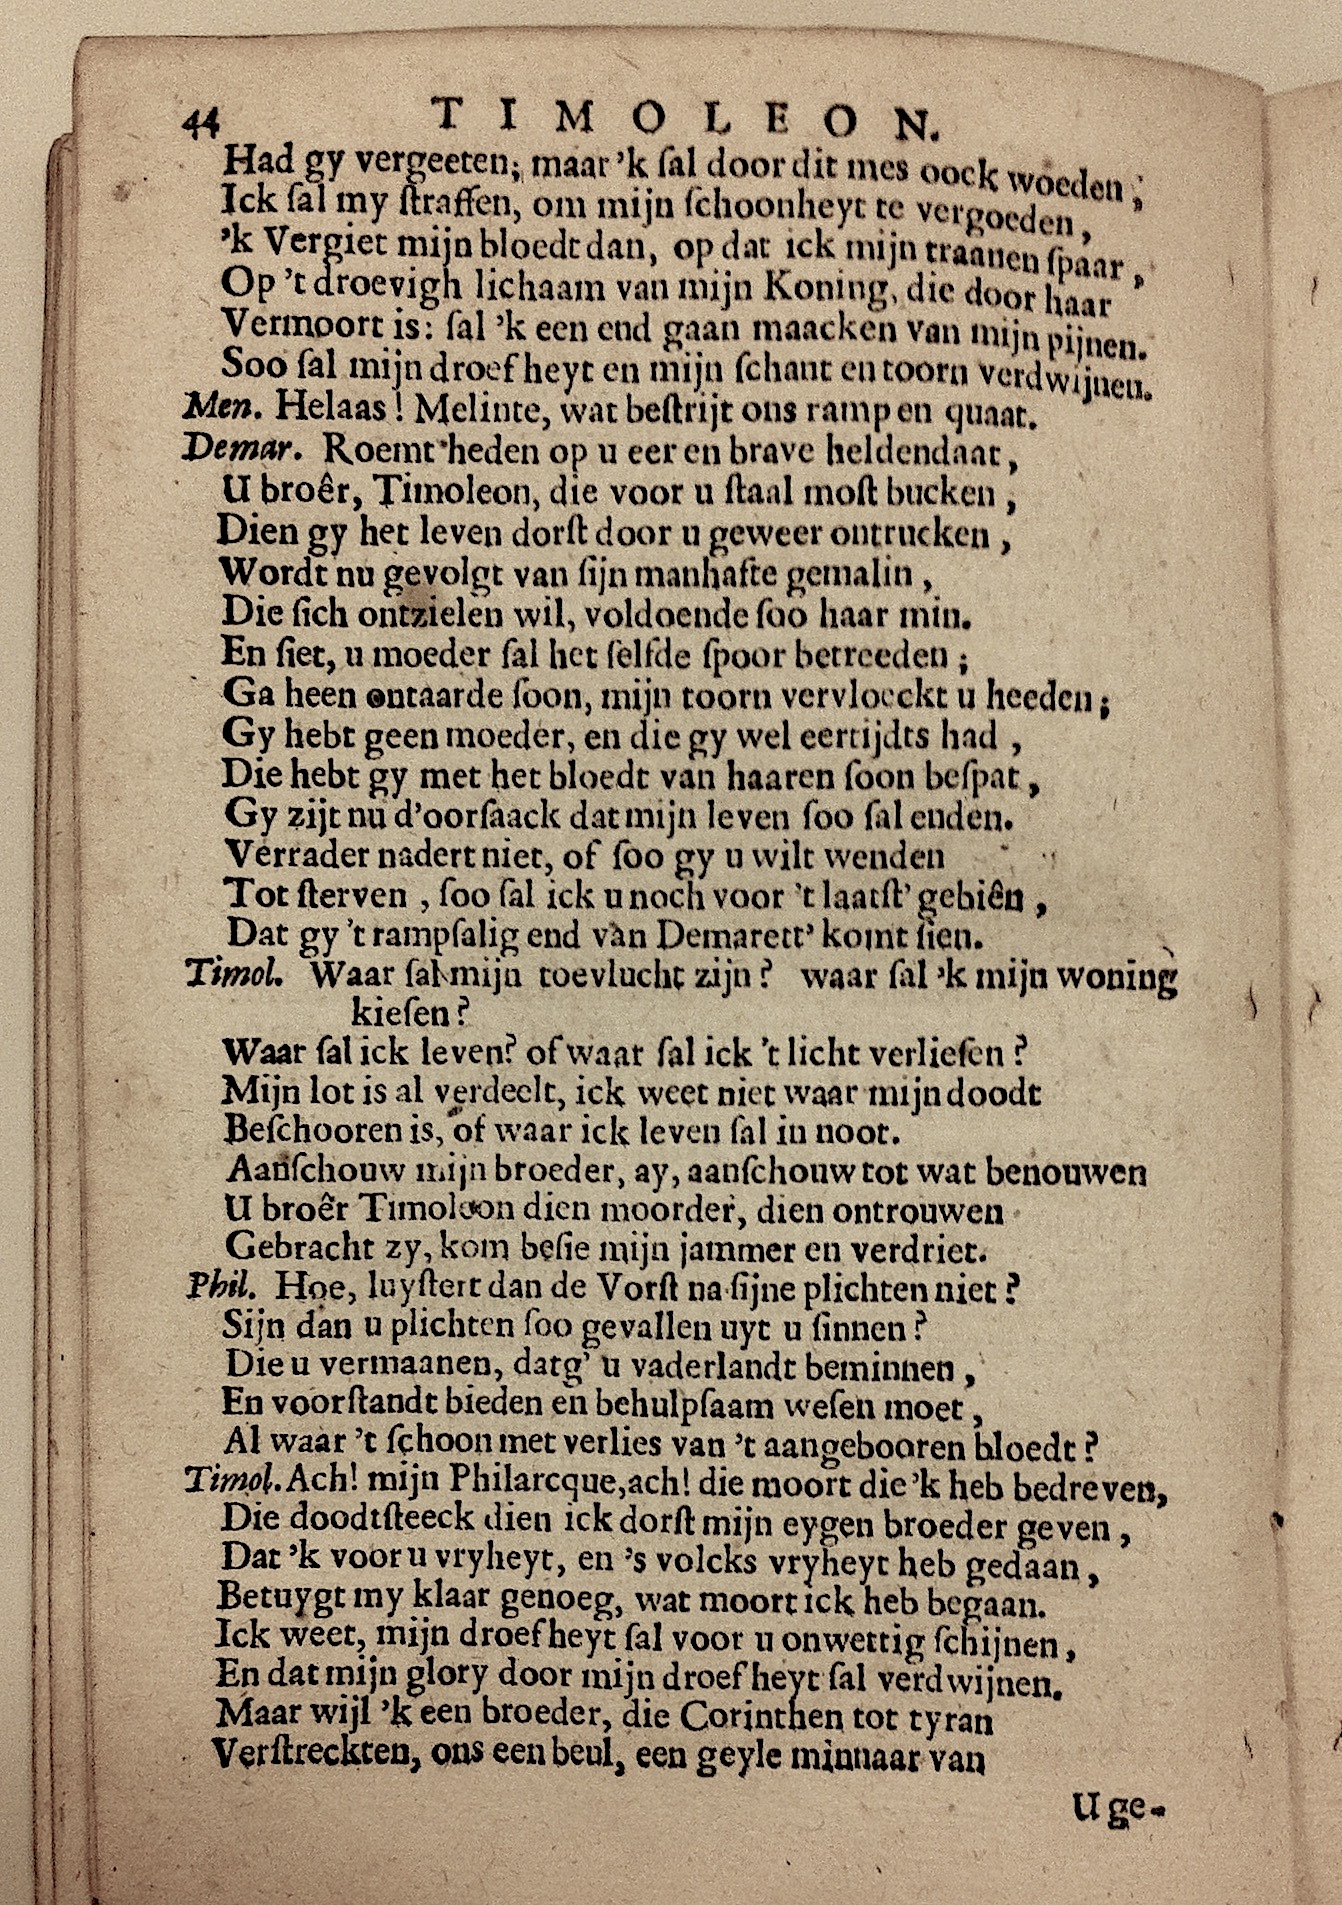 44 TIMOLEON.
Had gy vergeeten; maar 'k ſal door dit mes oock woeden;
Ick ſal my ſtraffen, om mijn ſchoonheyt te vergoeden,
'k Vergiet mijn bloedt dan, op dat ick mijn traanen ſpaar,
Op 't droevigh lichaam van mijn Koning, die door haar
Vermoort is: ſal 'k een end gaan maacken van mijn pijnen.
Soo ſal mijn droefheyt en mijn ſchant en toorn verdwijnen.
Men. Helaas! Melinte, wat beſtrijt ons ramp en quaat.
Demar. Roemt heden op u eer en brave heldendaat,
U broêr, Timoleon, die voor u ſtaal moſt bucken,
Dien gy het leven dorſt door u geweer ontrucken,
Wordt nu gevolgt van ſijn manhafte gemalin,
Die ſich ontzielen wil, voldoende ſoo haar min.
En ſiet, u moeder ſal het ſelfde ſpoor betreeden;
Ga heen ontaarde ſoon, mijn toorn vervloeckt u heeden;
Gy hebt geen moeder, en die gy wel eertijdts had,
Die hebt gy met het bloedt van haaren ſoon beſpat,
Gy zijt nu d'oorſaack dat mijn leven ſoo ſal enden.
Verrader nadert niet, of ſoo gy u wilt wenden
Tot ſterven, ſoo ſal ick u noch voor 't laatſt' gebiên,
Dat gy 't rampſalig end van Demarett' komt ſien.
Timol. Waar ſal mijn toevlucht zijn? waar ſal 'k mijn woning
kieſen?
Waar ſal ick leven? of waar ſal ick 't licht verlieſen?
Mijn lot is al verdeelt, ick weet niet waar mijn doodt
Beſchooren is, of waar ick leven ſal in noot.
Aanſchouw mijn broeder, ay, aanſchouw tot wat benouwen
U broêr Timoleon dien moorder, dien ontrouwen
Gebracht zy, kom beſie mijn jammer en verdriet.
Phil. Hoe, luyſtert dan de Vorſt na ſijne plichten niet?
Sijn dan u plichten ſoo gevallen uyt u ſinnen?
Die u vermaanen, dat g' u vaderlandt beminnen,
En voorſtandt bieden en behulpſaam weſen moet,
Al waar 't ſchoon met verlies van 't aangebooren bloedt?
Timol. Ach! mijn Philarcque, ach! die moort die 'k heb bedreven,
Die doodtſteeck dien ick dorſt mijn eygen broeder geven,
Dat 'k voor u vryheyt, en 's volcks vryheyt heb gedaan,
Betuygt my klaar genoeg, wat moort ick heb begaan.
Ick weet, mijn droefheyt ſal voor u onwettig ſchijnen,
En dat mijn glory door mijn droefheyt ſal verdwijnen.
Maar wijl 'k een broeder, die Corinthen tot tyran
Verſtreckten, ons een beul, een geyle minnaar van
U ge-